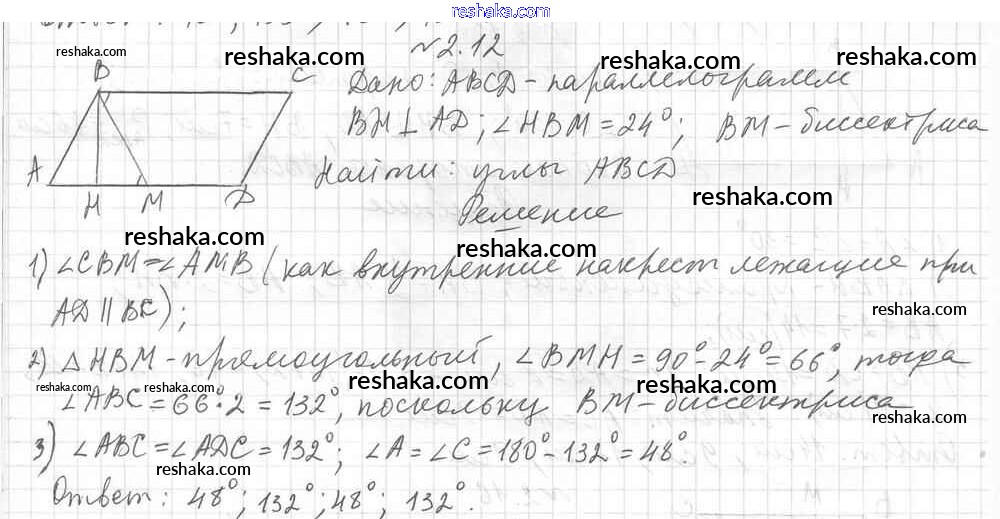 reshaka.com
№ 2.12
reshaka.com
reshaka.com
B
C
A
H
M
D
Дано: ABCD - параллелограмм
reshaka.com
BH ⊥ AD; ∠HBM = 24°; BM - биссектриса
Найти: углы ABCD
reshaka.com
reshaka.com
Решение
reshaka.com
reshaka.com
1) ∠CBM = ∠AMB (как внутренние накрест лежащие при
AD || BC);
reshaka.com
2) △HBM - прямоугольный, ∠BMH = 90° - 24° = 66°, тогда
reshaka.com
reshaka.com
reshaka.com
reshaka.com
∠ABC = 66° · 2 = 132°, поскольку BM - биссектриса
reshaka.com
3) ∠ABC = ∠ADC = 132°; ∠A = ∠C = 180° - 132° = 48°.
reshaka.com
Ответ: 48°; 132°; 48°; 132°.
reshaka.com
reshaka.com
reshaka.com